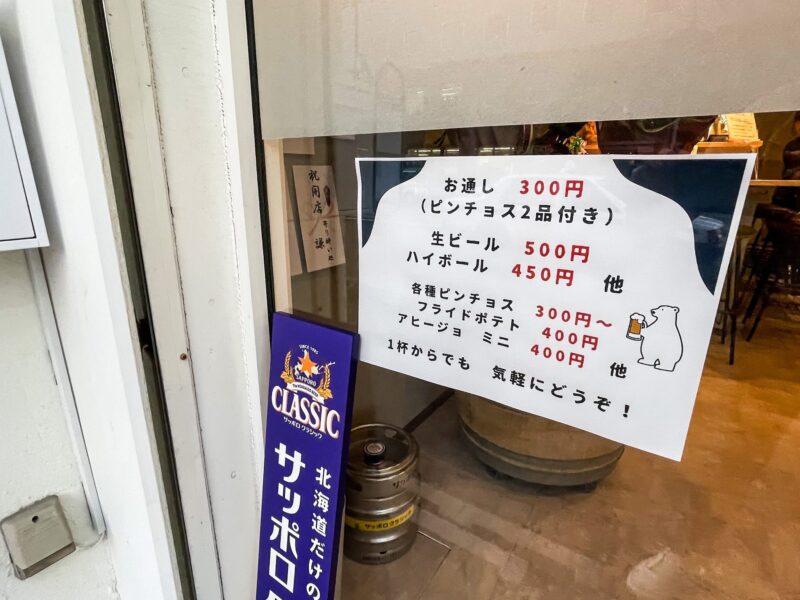 お通し 300円
（ピンチョス2品付き）
生ビール 500円
ハイボール 450円 他
各種ピンチョス 300円～
フライドポテト 400円
アヒージョ ミニ 400円 他
1杯からでも 気軽にどうぞ！
祝開店
SINCE 1985
SAPPORO
CLASSIC
サッポロ クラシック
北海道だけの
サッポロ
サッポロクラシック